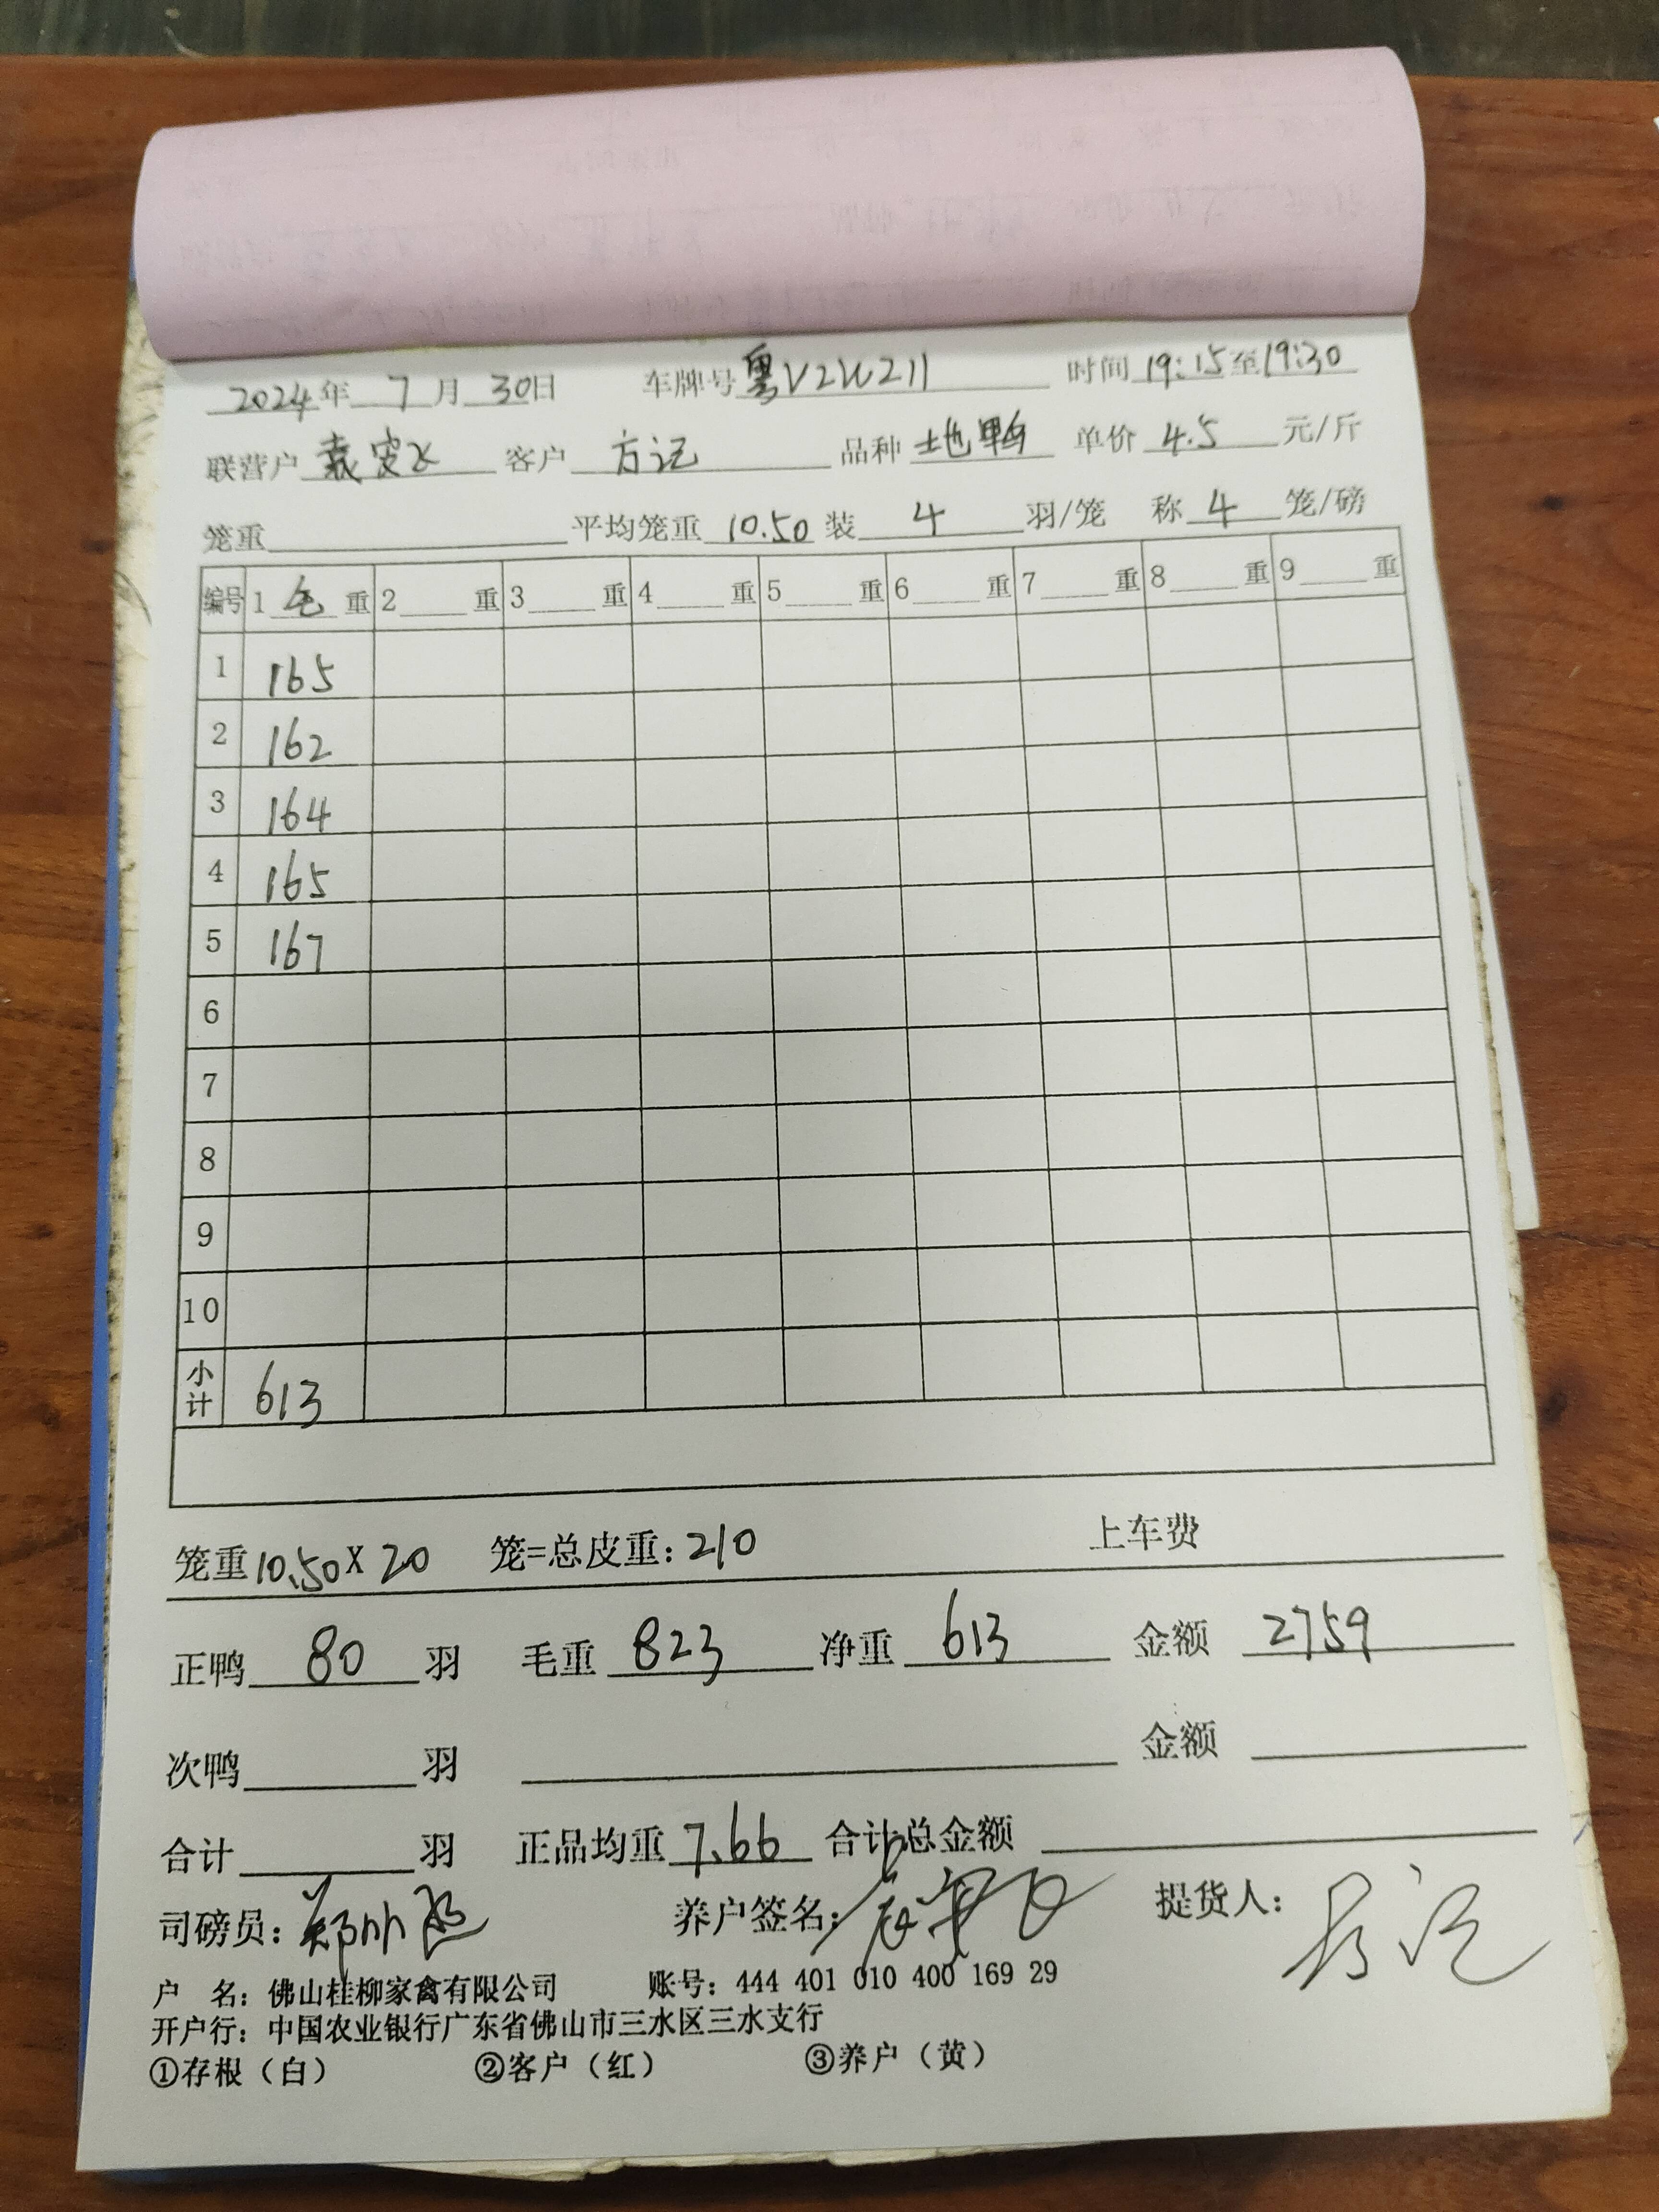 2024年 7 月 30日 车牌号 粤V2W211 时间 19:15至19:30
联营户 袁 客户 方记 品种 土也鸭 单价 4.5 元/斤
笼重 平均笼重 10.50 装 4 羽/笼 称 4 笼/磅
编号 1 毛 重 2 重 3 重 4 重 5 重 6 重 7 重 8 重 9 重
1 165
2 162
3 164
4 165
5 167
6
7
8
9
10
小计 613
笼重10.50X 20 笼=总皮重:210 上车费
正鸭 80 羽 毛重 823 净重 613 金额 2759
次鸭 羽 金额
合计 羽 正品均重 7.66 合计总金额
司磅员: 养户签名: 提货人: 方记
户 名: 佛山桂柳家禽有限公司 账号: 444 401 010 400 169 29
开户行: 中国农业银行广东省佛山市三水区三水支行
①存根（白） ②客户（红） ③养户（黄）